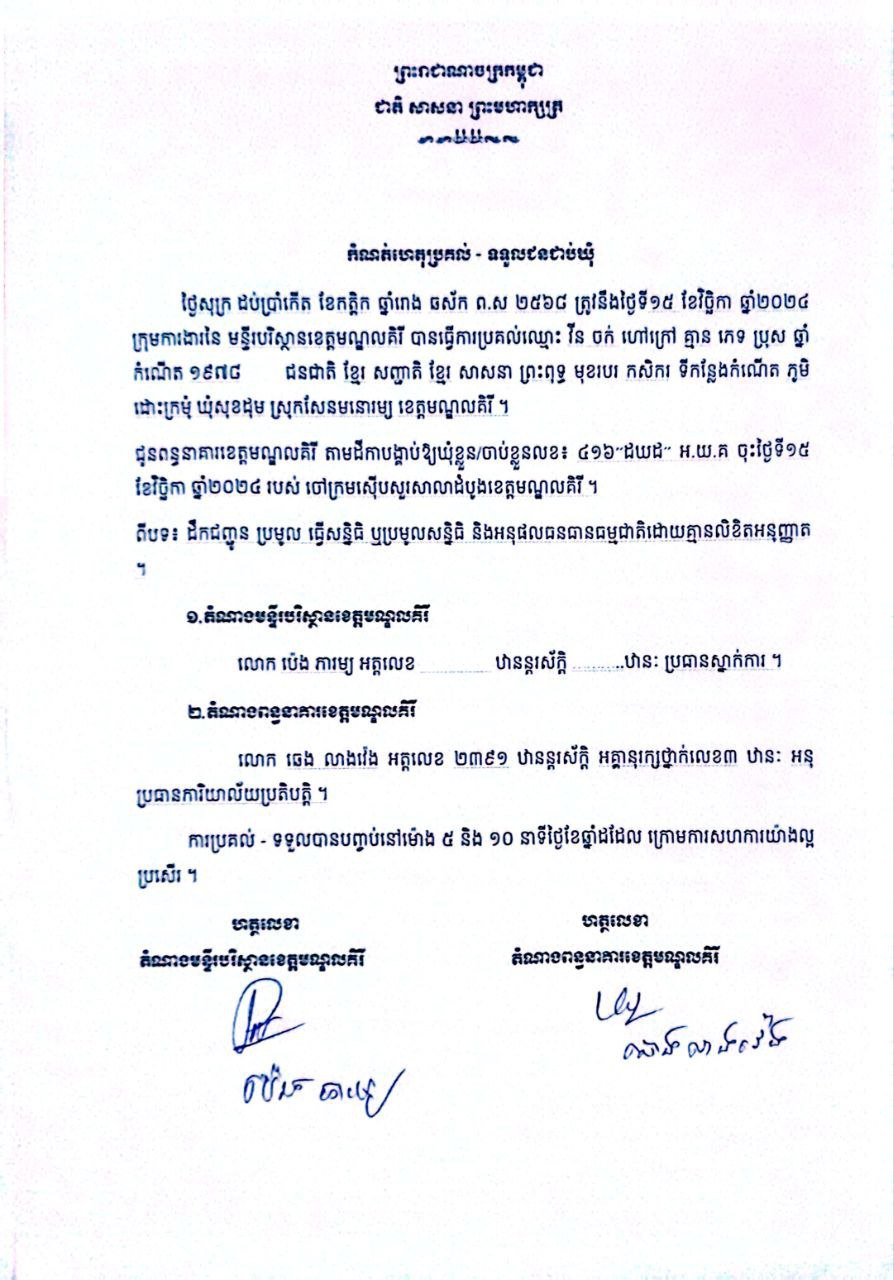 ព្រះរាជាណាចក្រកម្ពុជា
ជាតិ សាសនា ព្រះមហាក្សត្រ
កំណត់ហេតុប្រគល់ - ទទួលជនជាប់ឃុំ
ថ្ងៃសុក្រ ដប់ប្រាំកើត ខែកត្តិក ឆ្នាំរោង ធស័ក ព.ស ២៥៦៨ ត្រូវនឹងថ្ងៃទី១៥ ខែវិច្ឆិកា ឆ្នាំ២០២៤
ក្រុមការងារនៃ មន្ទីរបរិស្ថានខេត្តមណ្ឌលគិរី បានធ្វើការប្រគល់ឈ្មោះ វីន ចក់ ហៅក្រៅ គ្មាន ភេទ ប្រុស ឆ្នាំ
កំណើត ១៩៧៨ ជនជាតិ ខ្មែរ សញ្ជាតិ ខ្មែរ សាសនា ព្រះពុទ្ធ មុខរបរ កសិករ ទីកន្លែងកំណើត ភូមិ
ដោះក្រមុំ ឃុំសុខដុម ស្រុកសែនមនោរម្យ ខេត្តមណ្ឌលគិរី ។
ជូនពន្ធនាគារខេត្តមណ្ឌលគិរី តាមដីកាបង្គាប់ឱ្យឃុំខ្លួន/ចាប់ខ្លួនលេខ៖ ៤១៦"ដយដ" អ.យ.គ ចុះថ្ងៃទី១៥
ខែវិច្ឆិកា ឆ្នាំ២០២៤ របស់ ចៅក្រមស៊ើបសួរសាលាដំបូងខេត្តមណ្ឌលគិរី ។
ពីបទ៖ ដឹកជញ្ជូន ប្រមូល ធ្វើសន្និធិ ឬប្រមូលសន្និធិ និងអនុផលធនធានធម្មជាតិដោយគ្មានលិខិតអនុញ្ញាត
។
១.តំណាងមន្ទីរបរិស្ថានខេត្តមណ្ឌលគិរី
លោក ប៉េង ភារម្យ អត្តលេខ ............ ឋានន្តរស័ក្តិ ...........ឋានៈ ប្រធានស្នាក់ការ ។
២.តំណាងពន្ធនាគារខេត្តមណ្ឌលគិរី
លោក ឆេង លាងវ៉េង អត្តលេខ ២៣៩១ ឋានន្តរស័ក្តិ អគ្គានុរក្សថ្នាក់លេខ៣ ឋានៈ អនុ
ប្រធានការិយាល័យប្រតិបត្តិ ។
ការប្រគល់ - ទទួលបានបញ្ចប់នៅម៉ោង ៥ និង ១០ នាទីថ្ងៃខែឆ្នាំដដែល ក្រោមការសហការយ៉ាងល្អ
ប្រសើរ ។
ហត្ថលេខា
ហត្ថលេខា
តំណាងមន្ទីរបរិស្ថានខេត្តមណ្ឌលគិរី
តំណាងពន្ធនាគារខេត្តមណ្ឌលគិរី
ឆេង លាងវ៉េង
ប៉េង ភារម្យ